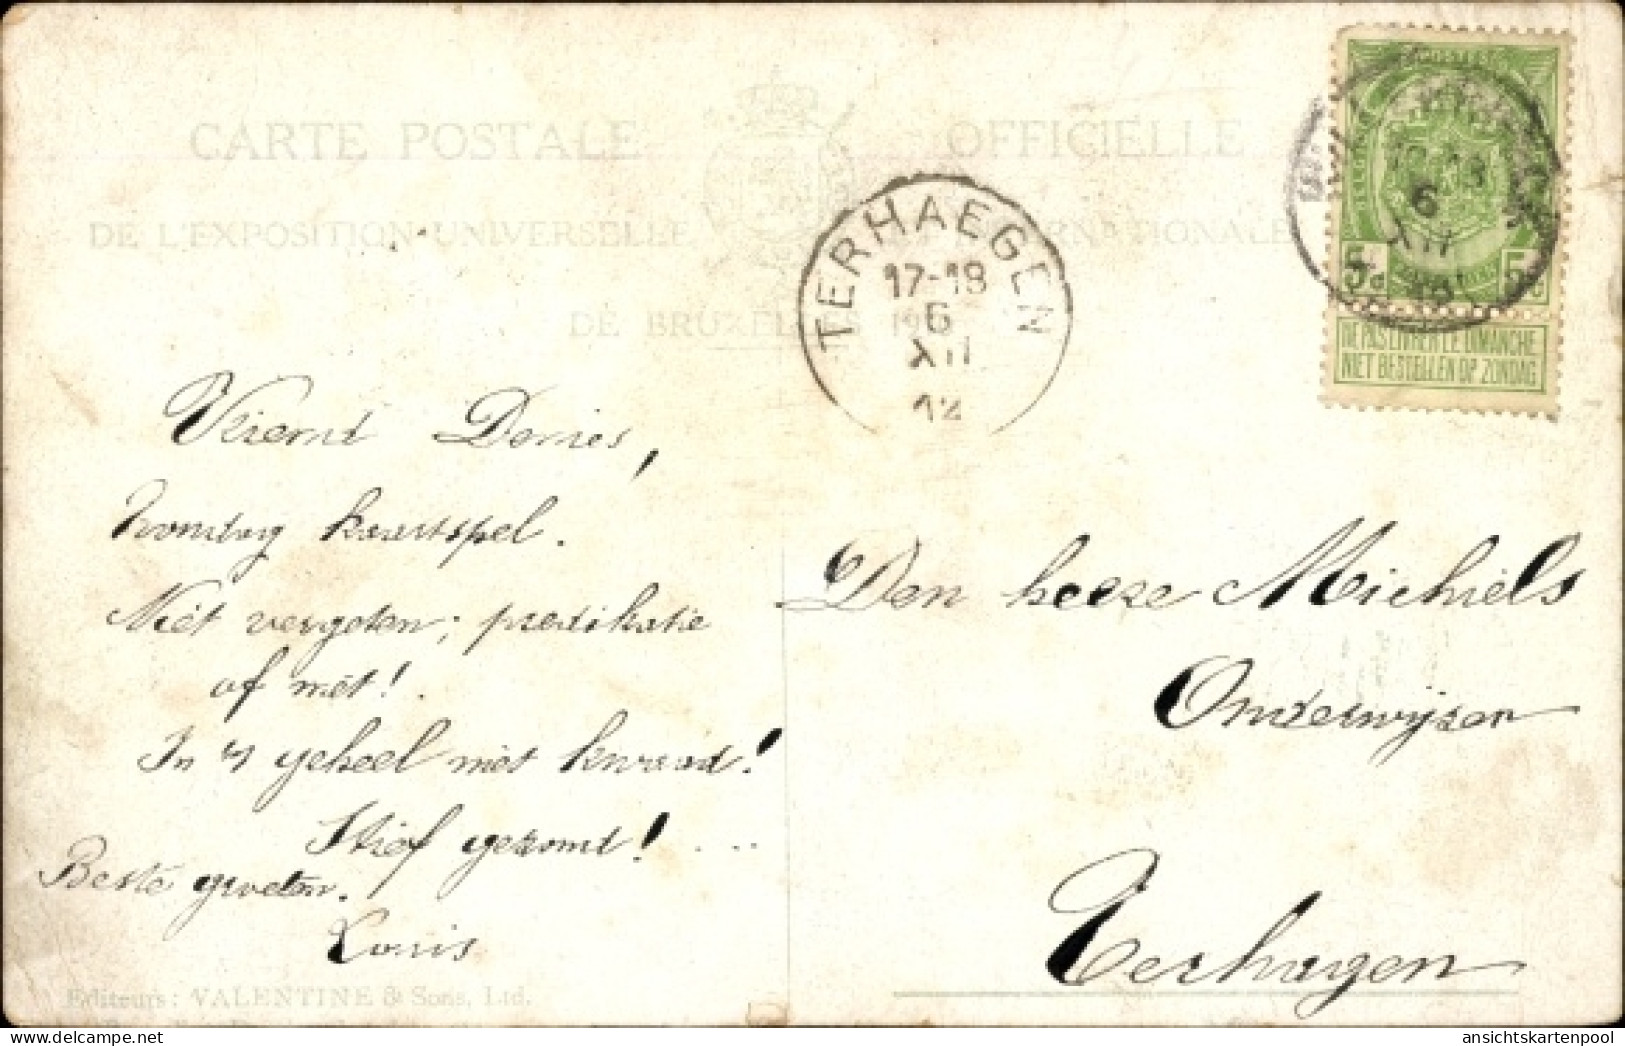 CARTE POSTALE OFFICIELLE
DE L'EXPOSITION UNIVERSELLE ET INTERNATIONALE
DE BRUXELLES
TERHAEGEN
17-18
6
XII
12
POSTES
6
XII
5c 5c
NE PAS LIVRER LE DIMANCHE
NIET BESTELLEN OP ZONDAG
Vriend Dories,
Zondag kaartspel.
Niet vergeten; predikatie
of niet!.
In 't geheel niet kwaad!
Stief gezond! ...
Beste groeten.
Louis
Den heere Michiels
Onderwijzer
Terhagen
Editeurs: VALENTINE & Sons, Ltd.
ansichtskartenpool